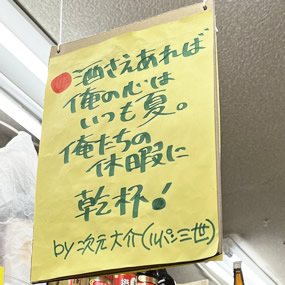 酒さえあれば
俺の心は
いつも夏。
俺たちの
休暇に
乾杯!
by 次元大介(ルパン三世)